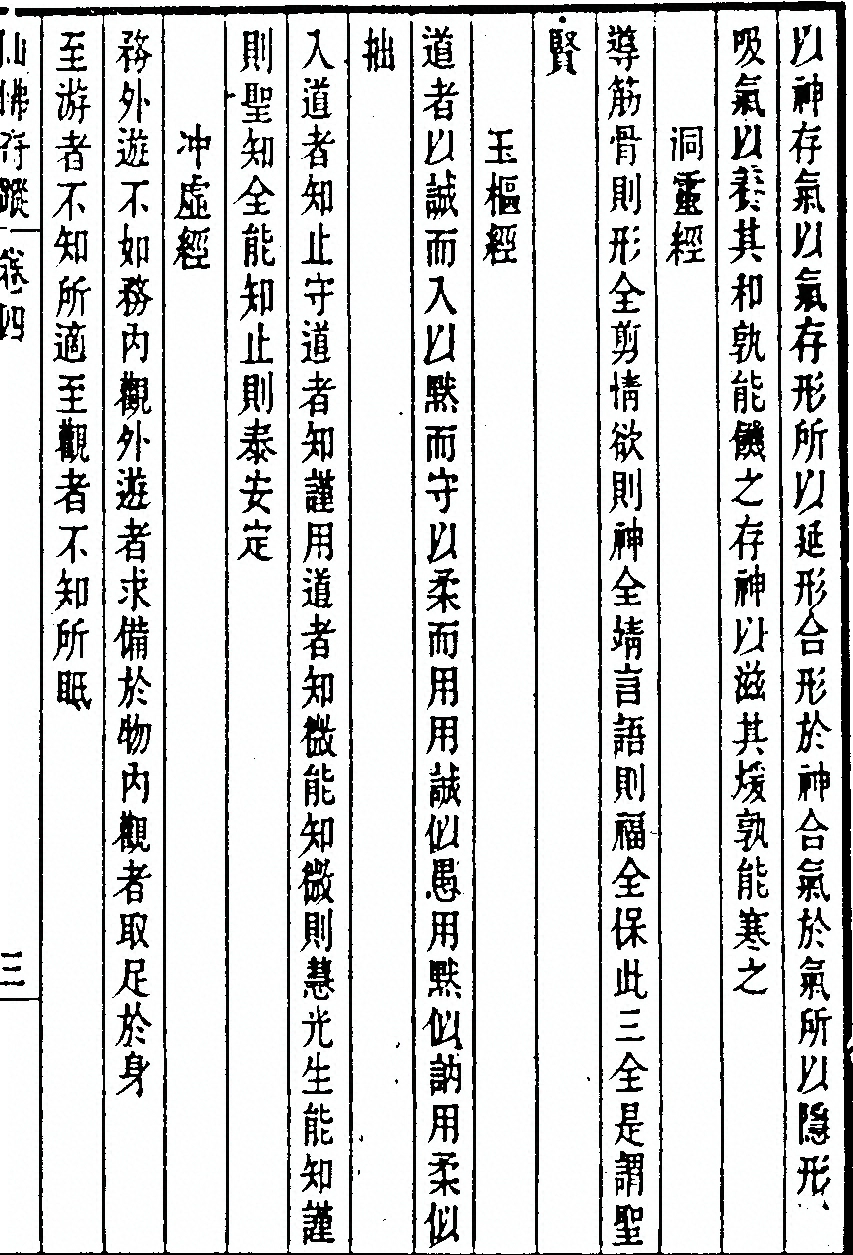 以神存氣以氣存形所以延形合形於神合氣於氣所以隱形
吸氣以養其和孰能饑之存神以滋其煖孰能寒之
洞靈經
導筋骨則形全剪情欲則神全靖言語則福全保此三全是謂聖
賢
玉樞經
道者以誠而入以默而守以柔而用用誠似愚用默似訥用柔似
拙
入道者知止守道者知謹用道者知微能知微則慧光生能知謹
則聖知全能知止則泰安定
冲虛經
務外遊不如務內觀外遊者求備於物內觀者取足於身
至游者不知所適至觀者不知所眂
仙佛奇蹤 卷四 三